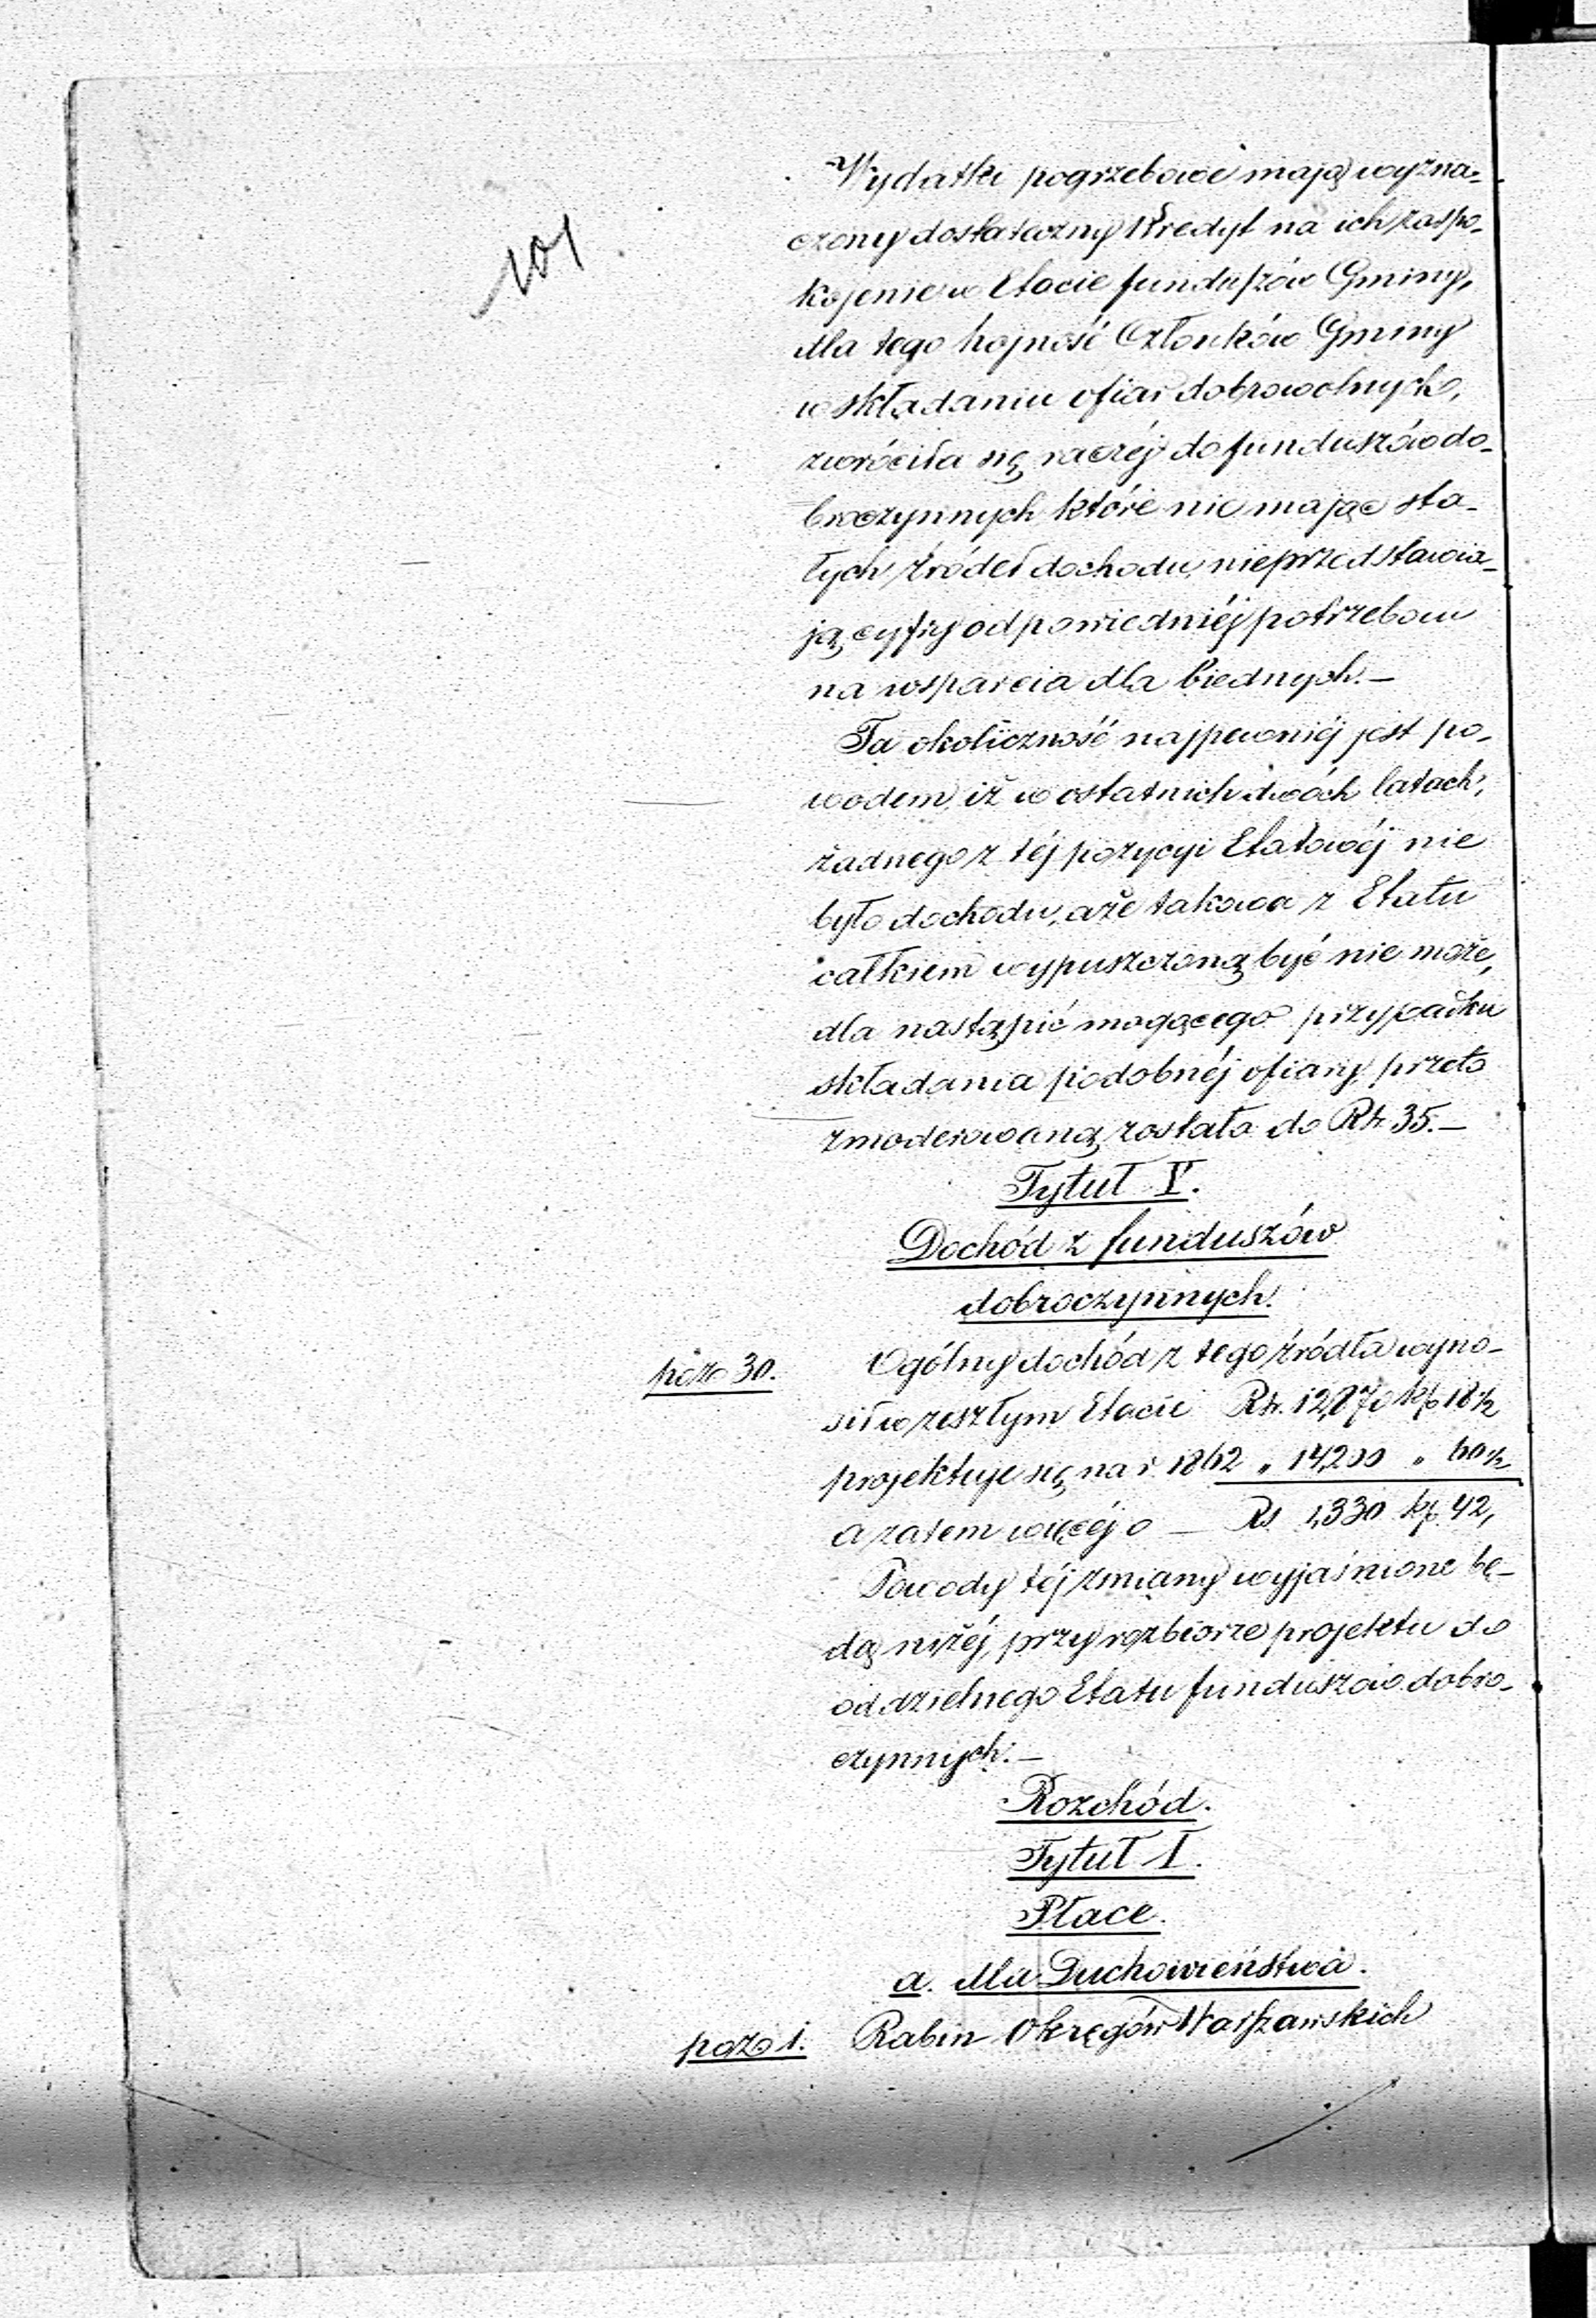 101
Wydatki pogrzebowe mają wyzna-
czony dostateczny Kredyt na ich zaspo-
kojenie w Etacie funduszów Gminy,
dla tego hojność Członków Gminy
w składaniu ofiar dobrowolnych,
zwróciła się raczéj do funduszów do-
broczynnych które nie mając sta-
łych źródeł dochodu, nieprzedstawia-
ją cyfry odpowiedniéj potrzebom
na wsparcia dla biednych.—
Ta okoliczność najpewniéj jest po-
wodem, iż w ostatnich dwóch latach,
żadnego z téj pozycyi Etatowéj nie
było dochodu, a że takowa z Etatu
całkiem wypuszczoną być nie może,
dla nastąpić mogącego przypadku
składania podobnéj ofiary, przeto
zmoderowaną została do Rs. 35.—
Tytuł V.
Dochód z funduszów
dobroczynnych.
poz. 30. Ogólny dochód z tego źródła wyno-
sił w zeszłym Etacie Rs. 12,870 kp 18½
projektuje się na r. 1862 „ 14,200 „ 60½
a zatem więcéj o — Rs 1,330 kp. 42,
Powody téj zmiany wyjaśnione bę-
dą niżéj, przy rozbiorze projektu do
oddzielnego Etatu funduszów dobro-
czynnych.—
Rozchód.
Tytuł I.
Płace.
a. dla Duchowieństwa.
poz. 1. Rabin Okręgów Warszawskich